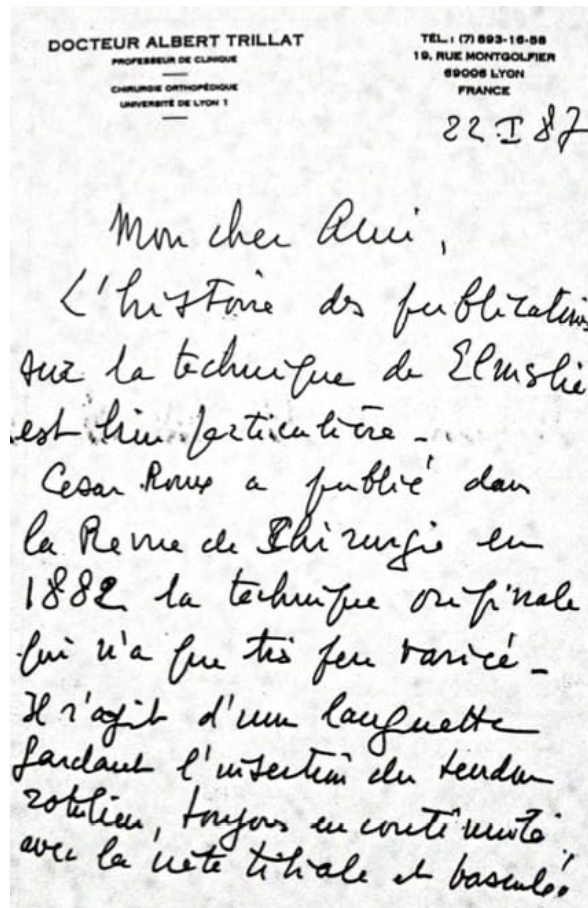 DOCTEUR ALBERT TRILLAT
PROFESSEUR DE CLINIQUE
CHIRURGIE ORTHOPÉDIQUE
UNIVERSITÉ DE LYON 1
TÉL. : (7) 893-16-56
19, RUE MONTGOLFIER
69006 LYON
FRANCE
22 I 87
Mon cher Ami,
L'histoire des publications
sur la technique de Elmslie
est bien particulière -
Cesar Roux a publié dans
la Revue de Chirurgie en
1882 la technique originale
qui n'a que très peu varié -
Il s'agit d'une languette
gardant l'insertion du tendon
rotulien, toujours en continuité
avec la crête tibiale et basculée